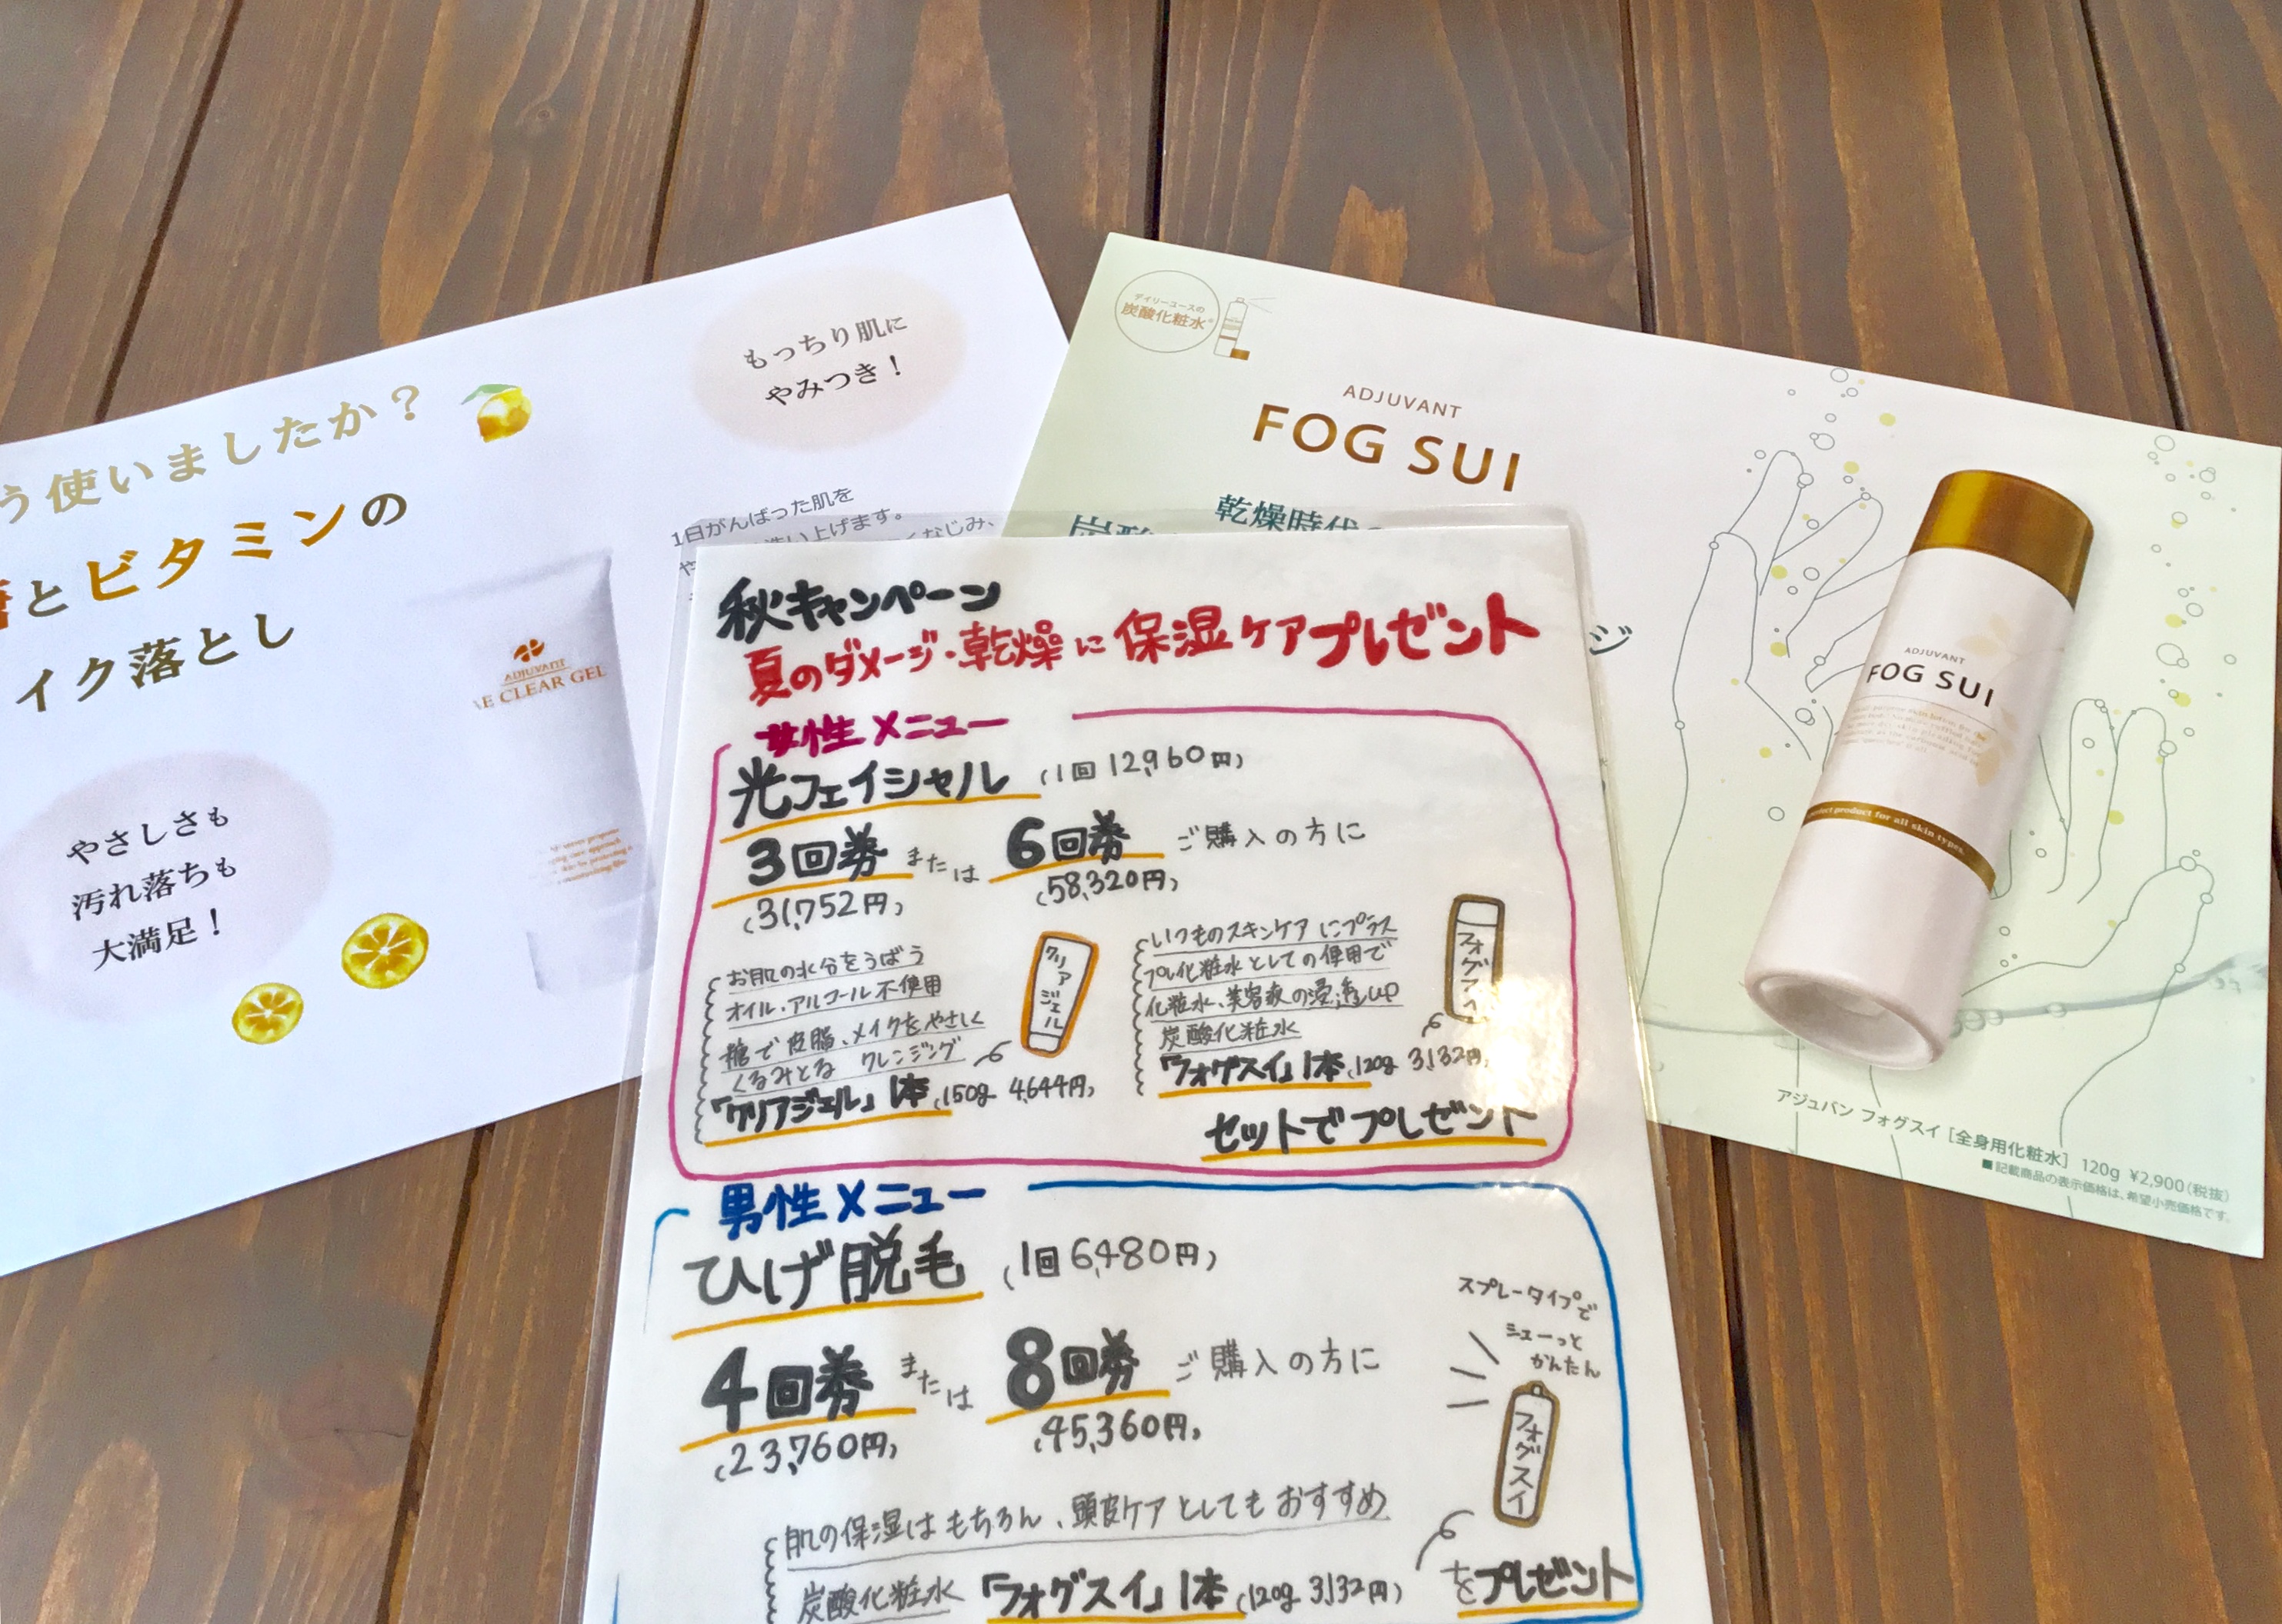 う使いましたか？
とビタミンの
イク落とし
もっちり肌に
やみつき！
1日がんばった肌を
洗い上げます。
なじみ、
ADJUVANT
E CLEAR GEL
やさしさも
汚れ落ちも
大満足！
デイリーユースの
炭酸化粧水
ADJUVANT
FOG SUI
乾燥時代
炭酸
ジ
ADJUVANT
FOG SUI
product for all skin types.
アジュバン フォグスイ［全身用化粧水］ 120g ¥2,900（税抜）
■記載商品の表示価格は、希望小売価格です。
秋キャンペーン
夏のダメージ・乾燥に保湿ケアプレゼント
女性メニュー
光フェイシャル（1回 12,960円）
3回券または6回券ご購入の方に
（31,752円）（58,320円）
お肌の水分をうばう
オイル、アルコール不使用
糖で皮脂、メイクをやさしく
くるみとる クレンジング
「クリアジェル」1本（150g 4,644円）
クリアジェル
いつものスキンケアにプラス
プレ化粧水としての使用で
化粧水、美容液の浸透up
炭酸化粧水
「フォグスイ」1本（120g 3,132円）
フォグスイ
セットでプレゼント
男性メニュー
ひげ脱毛（1回 6,480円）
4回券または8回券ご購入の方に
（23,760円）（45,360円）
スプレータイプで
シューっと
かんたん
フォグスイ
肌の保湿はもちろん、頭皮ケアとしてもおすすめ
炭酸化粧水「フォグスイ」1本（120g 3,132円）をプレゼント